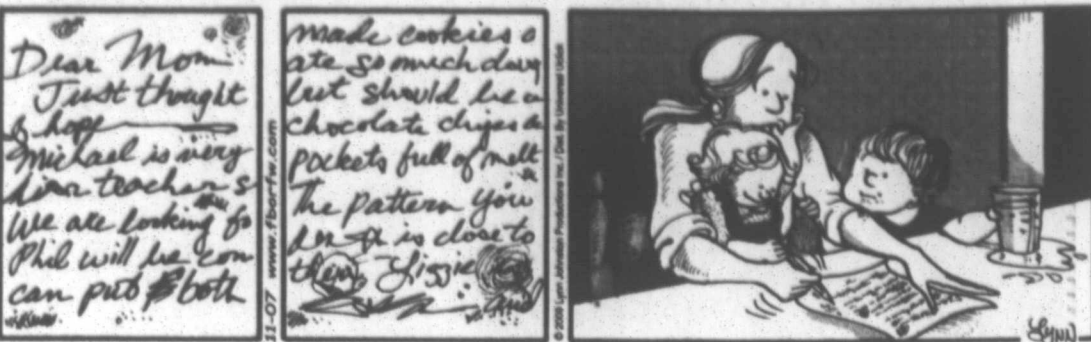 Dear Mom
Just thought
& hope
Michael is very
teacher s
We are looking fo
Phil will be con
can put both
11-07 www.fborfw.com
made cookies a
ate so much doug
but should be a
chocolate chips a
pockets full of melt
The pattern you
is close to
Lizzie
and
© 2009 Lynn Johnston Productions Inc. / Dist. By Universal Uclick
LYNN